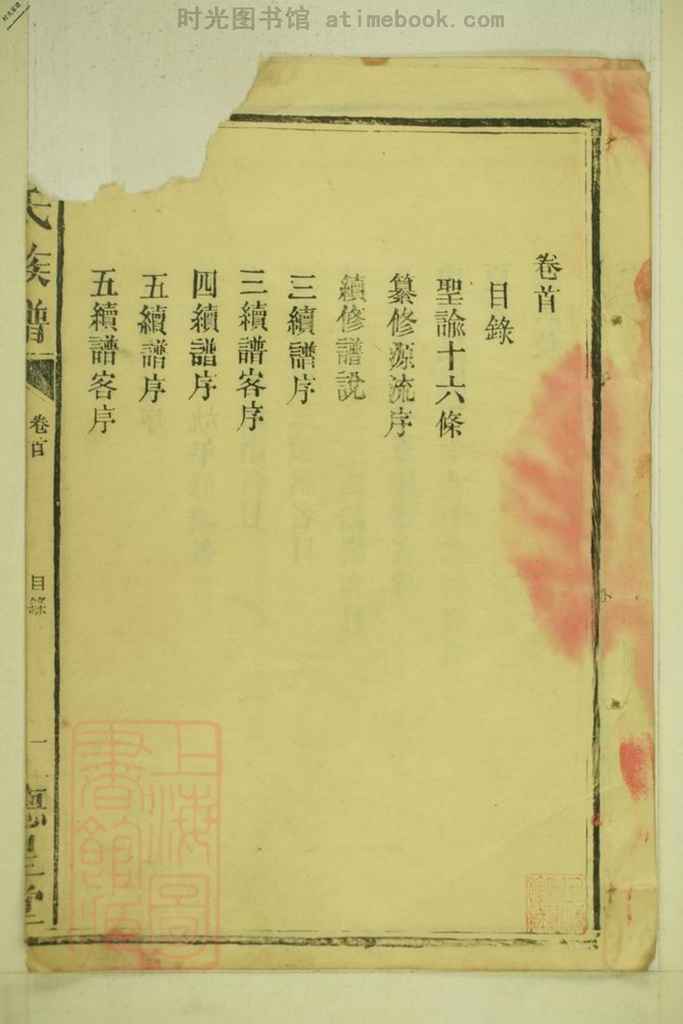 时光图书馆 atimebook.com
卷首
目錄
聖諭十六條
纂修源流序
續修譜說
三續譜序
三續譜客序
四續譜序
五續譜序
五續譜客序
氏族譜
卷首
目錄
一
堂
上海圖
書館藏